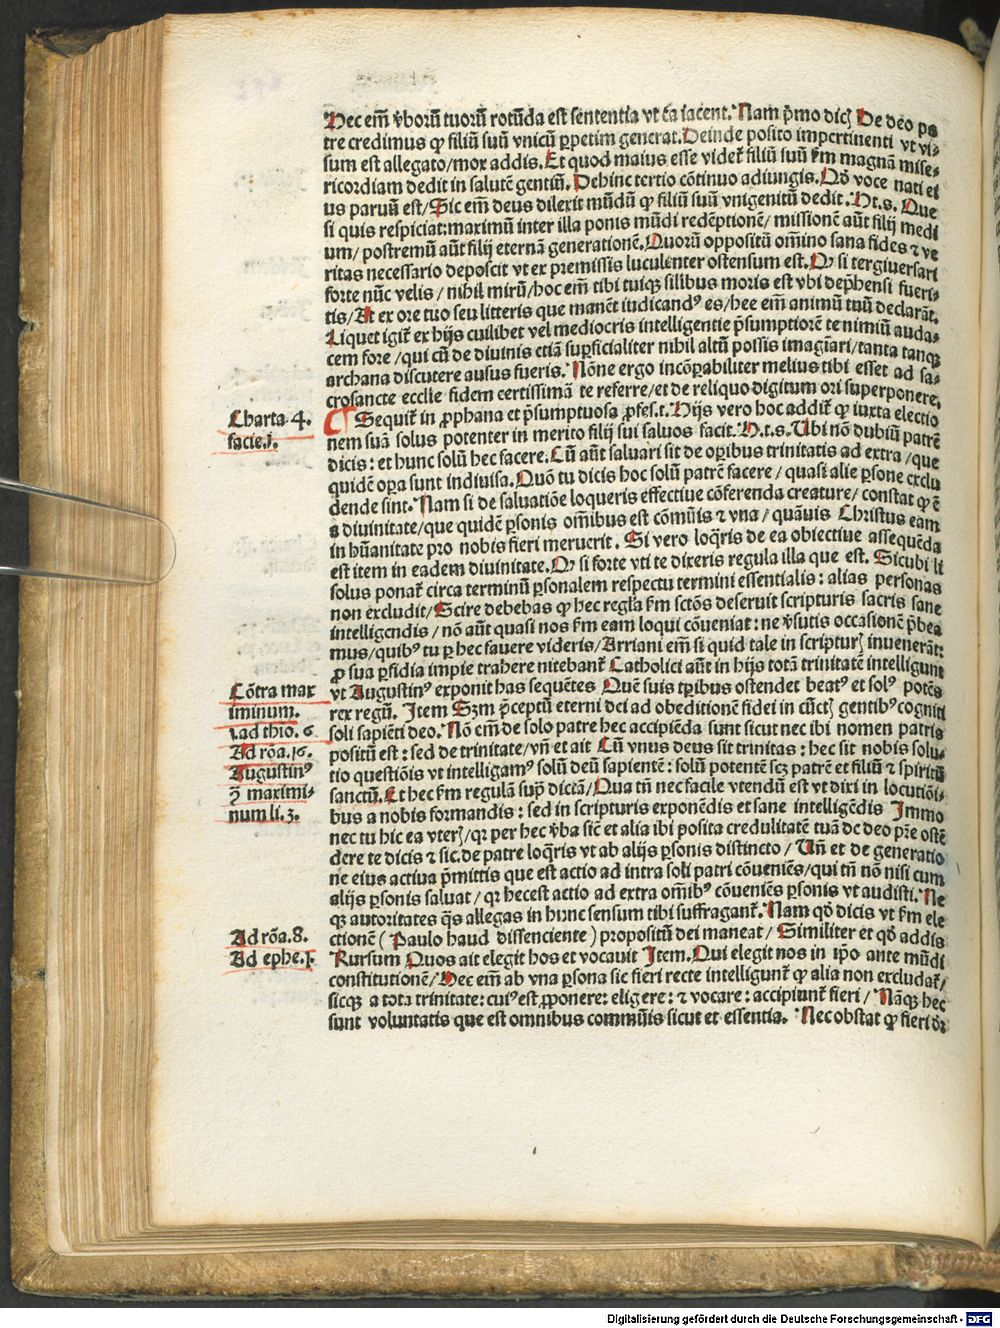 Hec em̄ v̓boru᷒ tuoru᷒ rotu᷒da est sententia vt ca̅ iacent. Nam p̄mo dicꝫ De deo pa
tre credimus ꝙ filiū suū vnicū ꝑpetim generat. Deinde posito impertinenti vt vi⸗
sum est allegato/ mox addis. Et quod maius esse videt᷑ filiū suū ẜm magnā mise⸗
ricordiam dedit in salutē gentiū. Dehinc tertio cōtinuo adiungis. Qđ voce nati ei
us paruū est/ Sic em̄ deus dilexit mūdū ꝙ filiū suū vnigenitū dedit. H.t.s. Que
si quis respiciat: maximū inter illa ponis mūdi redēptionē/ missionē aūt filij medi
um/ postremū aūt filij eternā generationē. Quorū oppositū om̄ino sana fides ⁊ ve
ritas necessario deposcit vt ex premissis luculenter ostensum est. Qꝫ si tergiuersari
forte nūc velis/ nihil mirū/ hoc em̄ tibi tuiqꝫ silibus moris est vbi dep̄hensi fueri⸗
tis/ At ex ore tuo seu litteris que manēt iudicandꝰ es/ hee em̄ animū tuū declarāt.
Liquet igit᷑ ex hijs cuilibet vel mediocris intelligentie p̄sumptiorē te nimiū auda⸗
cem fore/ qui cū de diuinis etiā suꝑficialiter nihil altū possis imagīari/ tanta tanqꝫ
archana discutere ausus fueris. Nōne ergo incōꝑabiliter melius tibi esset ad sa⸗
crosancte ecclie fidem certissimā te referre/ et de reliquo digitum ori superponere.
Charta.4.
facie.j.
¶ Sequit᷑ in ꝓphana et p̄sumptuosa ꝓfes.t. Hijs vero hoc addit᷑ ꝙ iuxta electio
nem suā solus potenter in merito filij sui saluos facit. H.t.s. Ubi nō dubiū patrē
dicis: et hunc solū hec facere. Cū aūt saluari sit de oꝑibus trinitatis ad extra/ que
quidē oꝑa sunt indiuisa. Quō tu dicis hoc solū patrē facere/ quasi alie ꝑsone exclu
dende sint. Nam si de saluatiōe loqueris effectiue cōferenda creature/ constat ꝙ ē
a diuinitate/ que quidē ꝑsonis om̄ibus est cōmūis ⁊ vna/ quāuis Christus eam
in hūanitate pro nobis fieri meruerit. Si vero loq̄ris de ea obiectiue assequēda
est item in eadem diuinitate. Qꝫ si forte vti te dixeris regula illa que est. Sicubi li
solus ponat᷑ circa terminū ꝑsonalem respectu termini essentialis: alias personas
non excludit/ Scire debebas ꝙ hec regl̄a ẜm sctōs deseruit scripturis sacris sane
intelligendis/ nō aūt quasi nos ẜm eam loqui cōueniat: ne v̓sutis occasionē p̄bea
mus/ quibꝰ tu ꝑ hec fauere videris/ Arriani em̄ si quid tale in scripturꝭ inuenerāt:
ꝓ sua ꝑfidia impie trahere nitebant᷑ Catholici aūt in hijs totā trinitatē intelligunt
Cōtra max
iminum.
1.ad thio.6
Ad rōa.16.
Augustinꝰ
ꝯ̄ maximi⸗
num li.3.
vt Augustinꝰ exponit has sequētes Quē suis tꝑibus ostendet beatꝰ et solꝰ potēs
rex regū. Item Scꝫm p̄ceptū eterni dei ad obeditionē fidei in cūctꝭ gentibꝰ cogniti
soli sapiēti deo. Nō em̄ de solo patre hec accipiēda sunt sicut nec ibi nomen patris
positū est: sed de trinitate/ vn̄ et ait Cū vnus deus sit trinitas: hec sit nobis solu⸗
tio questiōis vt intelligamꝰ solū deū sapientē: solū potentē scꝫ patrē et filiū ⁊ spiritū
sanctū. Et hec ẜm regulā supͣ dictā/ Qua tn̄ nec facile vtendū est vt dixi in locutiōi⸗
bus a nobis formandis: sed in scripturis exponēdis et sane intelligēdis Immo
nec tu hic ea vterꝭ/ qꝛ per hec v̓ba sic̄ et alia ibi posita credulitatē tuā de deo pr̄e ostē
dere te dicis ⁊ sic. de patre loq̄ris vt ab alijs ꝑsonis distincto/ Un̄ et de generatio
ne eius actiua p̄mittis que est actio ad intra soli patri cōueniēs/ qui tn̄ nō nisi cum
alijs ꝑsonis saluat/ qꝛ hec est actio ad extra om̄ibꝰ cōueniēs ꝑsonis vt audisti. Ne
qꝫ autoritates q̄s allegas in hunc sensum tibi suffragant᷑. Nam qđ dicis vt ẜm ele
Ad rōa.8.
Ad ephe.j.
ctionē (Paulo haud dissenciente) propositū dei maneat/ Similiter et qđ addis
Rursum Quos ait elegit hos et vocauit Item. Qui elegit nos in ip̄o ante mūdi
constitutionē/ Hec em̄ ab vna ꝑsona sic fieri recte intelligunt᷑ ꝙ alia non excludat᷑/
sicqꝫ a tota trinitate: cuiꝰ est ꝓponere: eligere: ⁊ vocare: accipiunt᷑ fieri/ Nāqꝫ hec
sunt voluntatis que est omnibus commūis sicut et essentia. Nec obstat ꝙ fieri dr̄
Digitalisierung gefördert durch die Deutsche Forschungsgemeinschaft - DFG